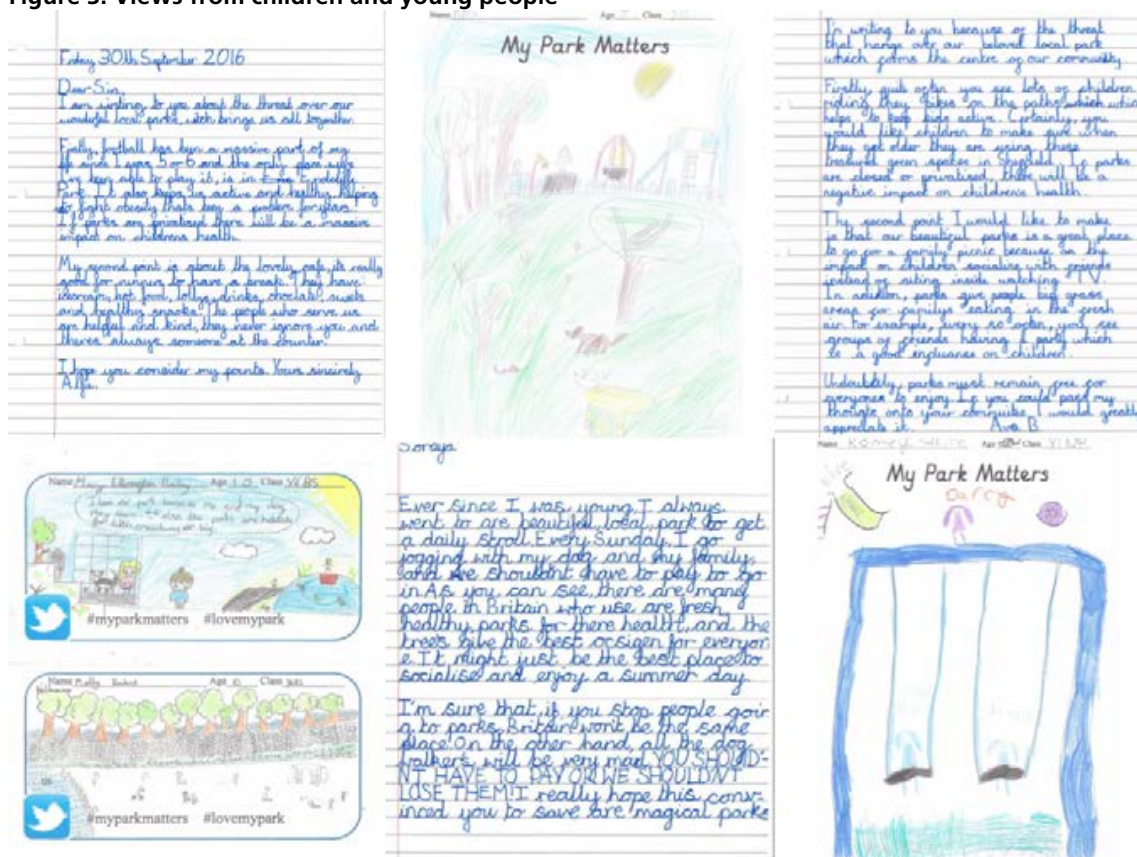 Figure 3: Views from children and young people
Friday 30th September 2016
Dear Sir,
I am writing to you about the threat over our
wonderful local parks, witch brings us all together
Firstly, football has been a massive part of my
life since I was 5 or 6 and the only place were
I've been able to play it, is in Endcliffe
Park. It also keeps us active and healthy helping
to fight obesity thats been a problem for years.
If parks are privatised there will be a massive
impact on childrens health.
My second point is about the lovely cafe, its really
good for runners to have a break. They have
icecream, hot food, lollys, drinks, choclate, sweets
and healthy snacks. The people who serve us
are helpful and kind, they never ignore you and
theres always someone at the counter.
I hope you consider my points. Yours sincerely
Alfie.
Name Age Class
My Park Matters
I'm writing to you because of the threat
that hangs over our beloved local park
which forms the centre of our community
Firstly, quite often you see lots of children
riding they bikes on the paths which
helps to keep kids active. Certainly, you
would like children to make sure when
they get older they are using these
treasured green spaces in Sheffield. If parks
are closed or privatised, there will be a
negative impact on children's health.
The second point I would like to make
is that our beautiful parks is a great place
to go for a family picnic because on the
impact on children socialise with friends
instead of siting inside watching TV.
In adition, parks give people big grass
areas for familys eating in the fresh
air for example, every so often, you see
groups of friends having a party which
is a good influance on children.
Undoubtily, parks must remain free for
everyone to enjoy. If you could pass my
thoughts onto your commitee, I would greatly
appreciate it. Ava B
Name Age 10 Class
#myparkmatters #lovemypark
Name Molly Age 10 Class
#myparkmatters #lovemypark
Soraya
Ever since I was young, I always
went to are beautiful, local park to get
a daily stroll. Every Sunday, I go
jogging with my dog and my family,
and we shouldnt have to pay to go
in. As you can see, there are many
people in Britain who use are fresh,
healthy parks for there health, and the
trees give the best ocsigen for everyon
e. It might just be the best place to
socialise and enjoy a summer day.
I'm sure that, if you stop people goin
g to parks, Britain won't be the same
place! On the other hand, all the dog
walkers will be very mad YOU SHOULD-
NT HAVE TO PAY OR WE SHOULDNT
LOSE THEM! I really hope this conv-
inced you to save are magical parks
Name Age Class
My Park Matters
Darcy